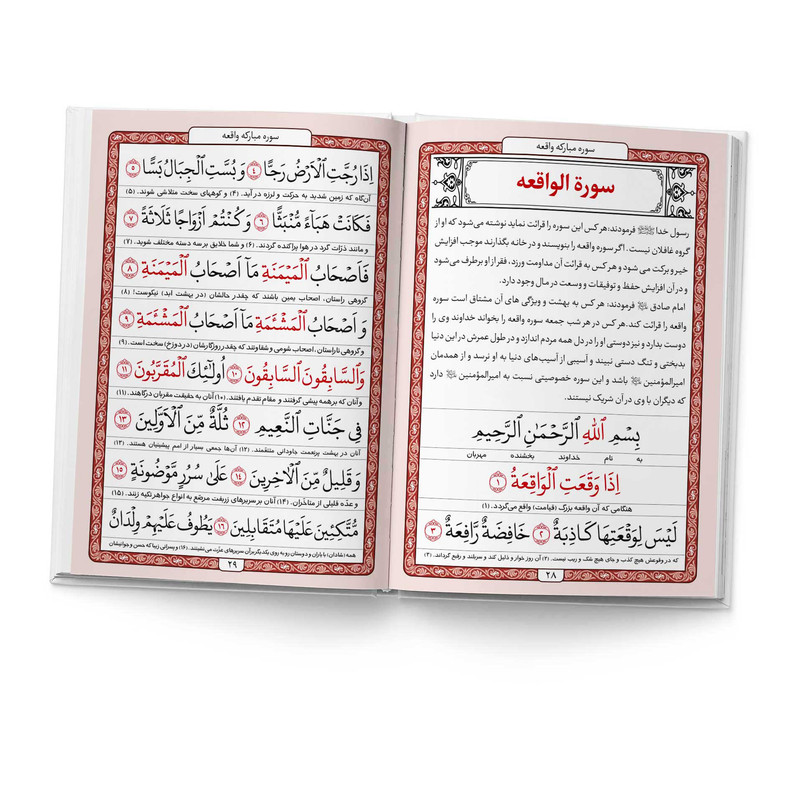 سوره مبارکه واقعه
سورة الواقعه
رسول خدا ﷺ فرمودند: هر کس این سوره را قرائت نماید نوشته می‌شود که او از
گروه غافلان نیست. اگر سوره واقعه را بنویسند و در خانه بگذارند موجب افزایش
خیر و برکت می شود و هر کس به قرائت آن مداومت ورزد، فقر از او برطرف می‌شود
و در آن افزایش حفظ و توفیقات و وسعت در مال وجود دارد.
امام صادق فرمودند: هر کس به بهشت و ویژگی های آن مشتاق است سوره
واقعه را قرائت کند. هر کس در هر شب جمعه سوره واقعه را بخواند خداوند وی را
دوست بدارد و نیز دوستی او را در دل همه مردم اندازد و در طول عمرش در این دنیا
بدبختی و تنگ دستی نبیند و آسیبی از آسیب‌های دنیا به او نرسد و از همدمان
امیرالمؤمنین باشد و این سوره خصوصیتی نسبت به امیرالمؤمنین دارد
که دیگران با وی در آن شریک نیستند.
بِسْمِ ٱللهِ ٱلرَّحْمَٰنِ ٱلرَّحِيمِ
به نام خداوند بخشنده مهربان
إِذَا وَقَعَتِ ٱلْوَاقِعَةُ ﴿۱﴾
هنگامی که آن واقعه بزرگ (قیامت) واقع می‌گردد. (۱)
لَيْسَ لِوَقْعَتِهَا كَاذِبَةٌ ﴿۲﴾ خَافِضَةٌ رَّافِعَةٌ ﴿۳﴾
که در وقوعش هیچ کذب و جای هیچ شک و ریب نیست. (۲) آن روز خوار و ذلیل کند و سربلند و رفیع گرداند. (۳)
۲۸
سوره مبارکه واقعه
إِذَا رُجَّتِ ٱلْأَرْضُ رَجًّا ﴿۴﴾ وَبُسَّتِ ٱلْجِبَالُ بَسًّا ﴿۵﴾
آن‌گاه که زمین شدید به حرکت و لرزه در آید. (۴) و کوه‌های سخت متلاشی شوند. (۵)
فَكَانَتْ هَبَآءً مُّنۢبَثًّا ﴿۶﴾ وَكُنتُمْ أَزْوَاجًا ثَلَاثَةً ﴿۷﴾
و مانند ذرّات گرد در هوا پراکنده گردند. (۶) و شما خلایق بر سه دسته مختلف شوید. (۷)
فَأَصْحَابُ ٱلْمَيْمَنَةِ مَآ أَصْحَابُ ٱلْمَيْمَنَةِ ﴿۸﴾
گروهی راستان، اصحاب یمین باشند که چقدر حالشان (در بهشت ابد) نیکوست! (۸)
وَأَصْحَابُ ٱلْمَشْـَٔمَةِ مَآ أَصْحَابُ ٱلْمَشْـَٔمَةِ ﴿۹﴾
و گروهی ناراستان، اصحاب شومی و شقاوتند که چقدر روزگارشان (در دوزخ) سخت است. (۹)
وَٱلسَّابِقُونَ ٱلسَّابِقُونَ ﴿۱۰﴾ أُولَٰٓئِكَ ٱلْمُقَرَّبُونَ ﴿۱۱﴾
و آنان که بر همه پیشی گرفتند و مقام تقدم یافتند. (۱۰) آنان به حقیقت مقربان درگاهند. (۱۱)
فِي جَنَّاتِ ٱلنَّعِيمِ ﴿۱۲﴾ ثُلَّةٌ مِّنَ ٱلْأَوَّلِينَ ﴿۱۳﴾
آنان در بهشت پرنعمت جاودانی متنعّمند. (۱۲) آن‌ها جمعی بسیار از امم پیشینیان هستند. (۱۳)
وَقَلِيلٌ مِّنَ ٱلْآخِرِينَ ﴿۱۴﴾ عَلَىٰ سُرُرٍ مَّوْضُونَةٍ ﴿۱۵﴾
و عدّه قلیلی از متاخّران. (۱۴) آنان بر سریرهای زربفت مرصّع به انواع جواهر تکیه زنند. (۱۵)
مُّتَّكِئِينَ عَلَيْهَا مُتَقَابِلِينَ ﴿۱۶﴾ يَطُوفُ عَلَيْهِمْ وِلْدَانٌ
همه (شادان) با یاران و دوستان رو به روی یکدیگر بر آن سریرهای عزّت می نشینند. (۱۶) و پسرانی زیبا که حسن و جوانیشان
۲۹